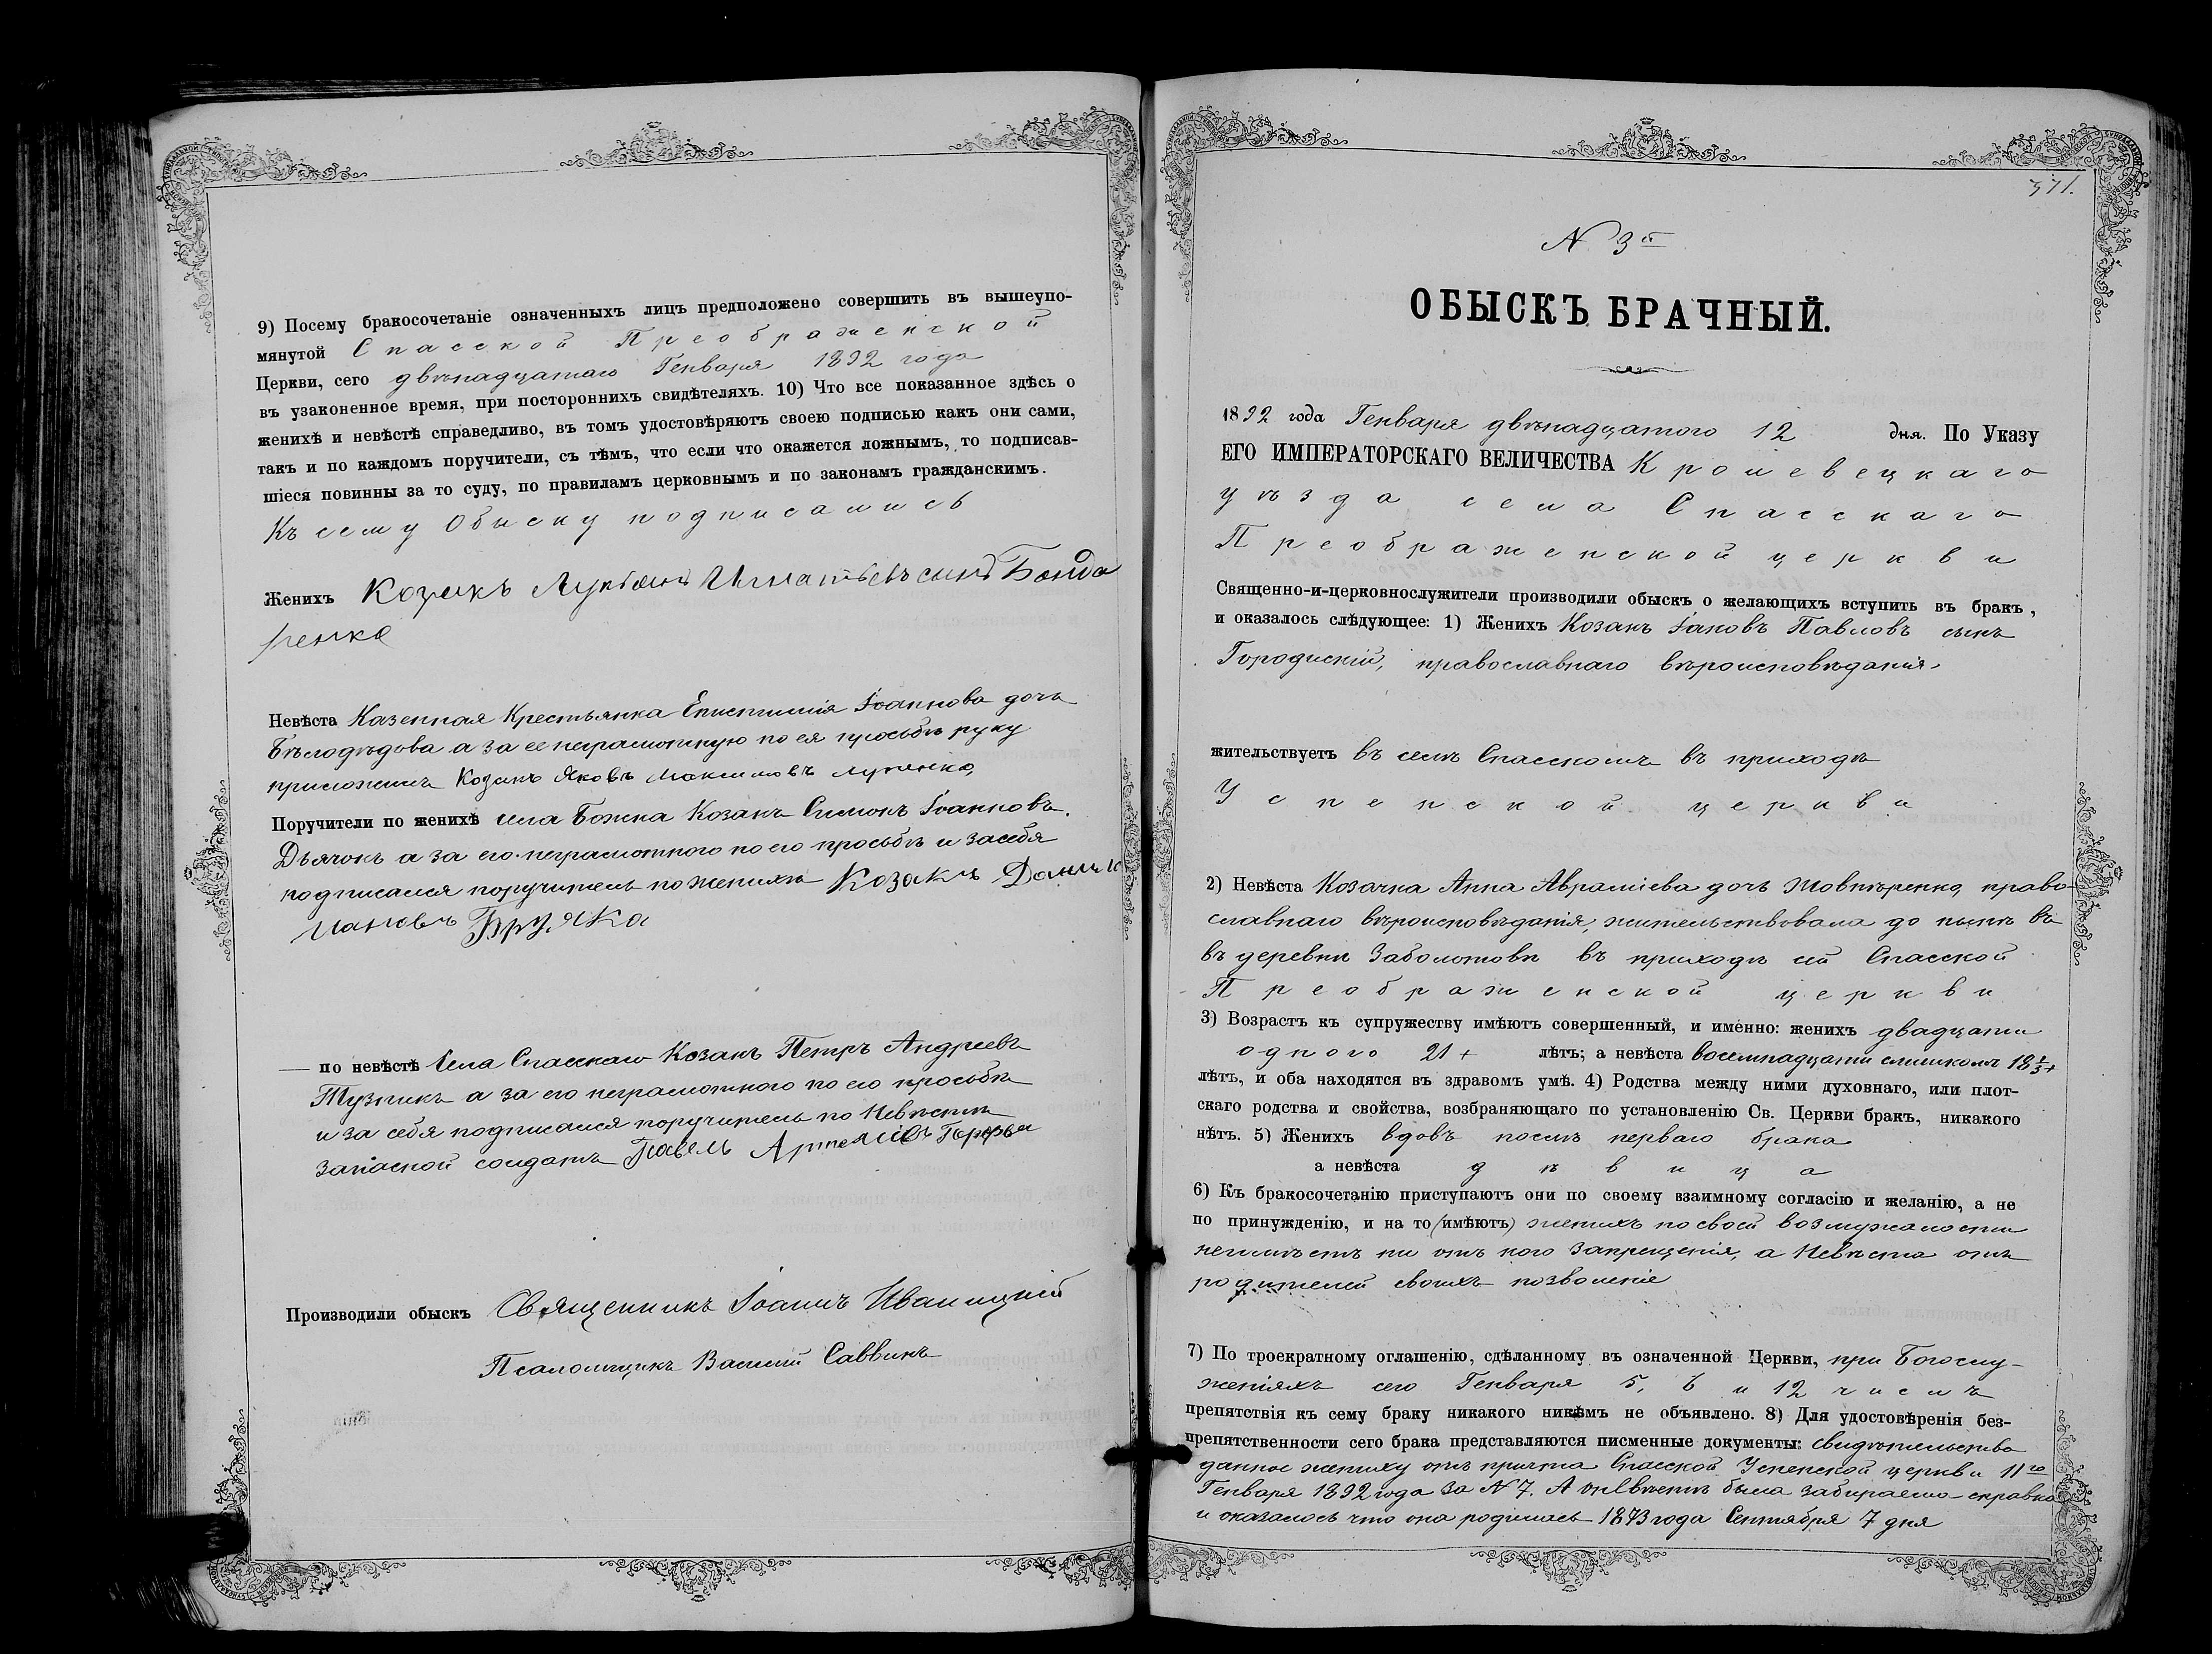 9) Посему бракосочетаніе означенныхъ лицъ предположено совершить въ вышеупо-
мянутой Спасской Преображенской
Церкви, сего двѣнадцатаго Генваря 1892 года
въ узаконенное время, при постороннихъ свидѣтеляхъ. 10) Что все показанное здѣсь о
женихѣ и невѣстѣ справедливо, въ томъ удостовѣряютъ своею подписью какъ они сами,
такъ и по каждомъ поручители, съ тѣмъ, что если что окажется ложнымъ, то подписав-
шіеся повинны за то суду, по правиламъ церковнымъ и по законамъ гражданскимъ.
Къ сему Обыску подписались
Женихъ Козакъ Лукіянъ Игнатьевъ сынъ Бонда
ренко
Невѣста Казенная Крестьянка Епистимія Іоаннова дочь
Бѣлодѣдова а за ее неграмотную по ея просьбѣ руку
приложилъ Козакъ Яковъ Максимовъ
Поручители по женихѣ села Божка Козакъ Симонъ Іоанновъ
Дьячокъ а за его неграмотного по его просьбѣ и засебя
подписался поручитель по женихѣ Козакъ Данило
Бруяка
по невѣстѣ Села Спасскаго Козакъ Петръ Андреевъ
Тузникъ а за его неграмотного по его просьбѣ
и за себя подписался поручитель по Невѣстѣ
Запасной солдатъ Павелъ Артемиевъ
Производили обыскъ Священникъ Іоаннъ Иваницкій
Псаломщикъ Василій Саввинъ
371.
N 3й
ОБЫСКЪ БРАЧНЫЙ.
1892 года Генваря двѣнадцатого 12 дня. По Указу
ЕГО ИМПЕРАТОРСКАГО ВЕЛИЧЕСТВА Кролевецкаго
уѣзда села Спасскаго
Преображенской церкви
Священно-и-церковнослужители производили обыскъ о желающихъ вступить въ бракъ,
и оказалось слѣдующее: 1) Женихъ Козакъ Іаковъ Павловъ сынъ
Городискій, православнаго вѣроисповѣданія
жительствуетъ въ селѣ Спасскомъ въ приходѣ
Успенской церкви
2) Невѣста Козачка Анна Аврамiева дочь Жовтѣренко, право-
славнаго вѣроисповѣданія, жительствовала до нынѣ въ
въ деревнѣ Заболотовѣ въ приходѣ сей Спасской
Преображенской церкви
3) Возрастъ къ супружеству имѣютъ совершенный, и именно: женихъ двадцати
одного 21+ лѣтъ; а невѣста восемнадцати слишкомъ 18 1/3+
лѣтъ, и оба находятся въ здравомъ умѣ. 4) Родства между ними духовнаго, или плот-
скаго родства и свойства, возбраняющаго по установленію Св. Церкви бракъ, никакого
нѣтъ. 5) Женихъ вдовъ послѣ перваго брака
а невѣста дѣвица
6) Къ бракосочетанію приступаютъ они по своему взаимному согласію и желанію, а не
по принужденію, и на то (имѣютъ) женихъ по своей возмужалости
неимѣетъ ни отъ кого запрещенія, а Невѣста отъ
родителей своихъ позволеніе
7) По троекратному оглашенію, сдѣланному въ означенной Церкви, при Богослу-
женіяхъ сего Генваря 5, 6 и 12 числъ
препятствія къ сему браку никакого никѣмъ не объявлено. 8) Для удостовѣренія без-
препятственности сего брака представляются писменные документы: свидѣтельство
данное жениху отъ причта Спасской Успенской церкви 11го
Генваря 1892 года за N 7. А о невѣстѣ была забираемо справка
и оказалось что она родилась 1873 года Сентября 7 дня